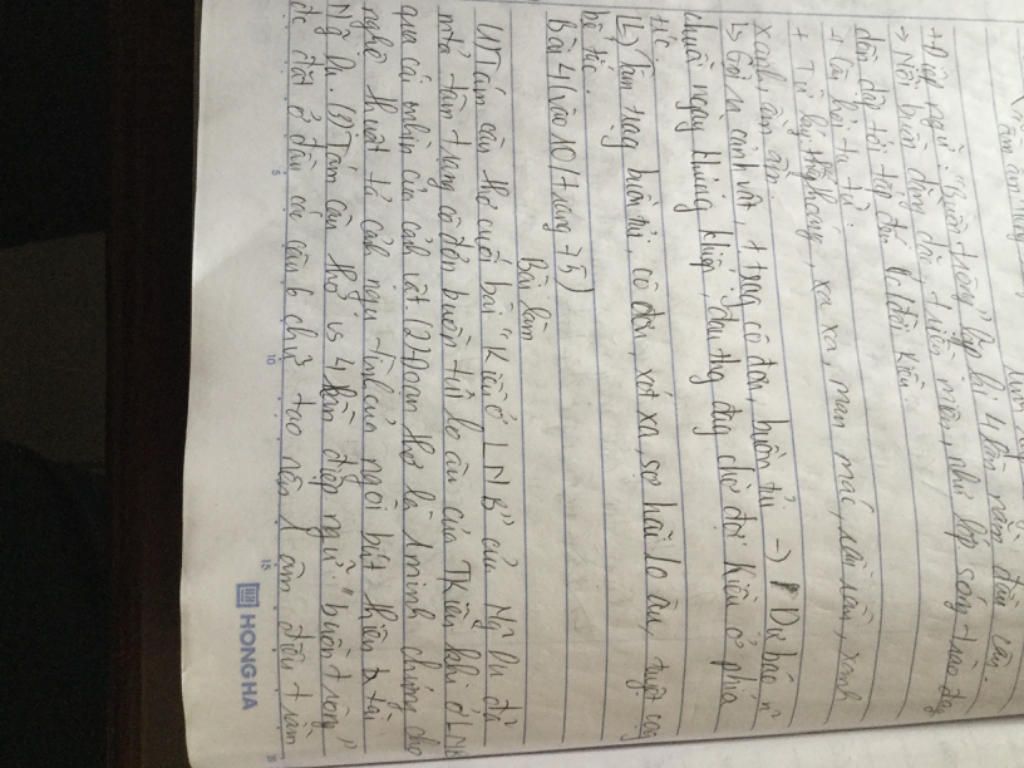 + Điệp ngữ "buồn trông" lặp lại 4 lần nằm đầu câu.
→ Nỗi buồn dằng dặc, triền miên, như lớp sóng trào dâng
dồn dập tới tấp
+ Câu hỏi tu từ
+ Từ láy: thấp thoáng, xa xa, man mác, rầu rầu, xanh
xanh, ầm ầm
↳ Gợi tả cảnh vật, t trạng cô đơn, buồn tủi → Dự báo n~
chuỗi ngày khủng khiếp, đau thg đag chờ đợi Kiều ở phía
trc.
Tâm trạng buồn tủi, cô đơn, xót xa, sợ hãi lo âu, tuyệt vọng
bế tắc.
Bài 4 (vào 10/trang 75)
Bài làm
(1) Tám câu thơ cuối bài "Kiều ở LNB" của Ng~ Du đã
mtả tâm trạng cô đơn buồn tủi lo âu của TKiều khi ở LNB
qua cái nhìn của cảnh vật. (2) Đoạn thơ là 1 minh chứng cho
nghệ thuật tả cảnh ngụ tình của ngòi bút thiên tài
Ng~ Du. (3) Tám câu thơ vs 4 lần điệp ngữ "buồn trông"
đc đặt ở đầu các câu 6 chữ tạo nên âm điệu trầm
5
10
15
HONG HA